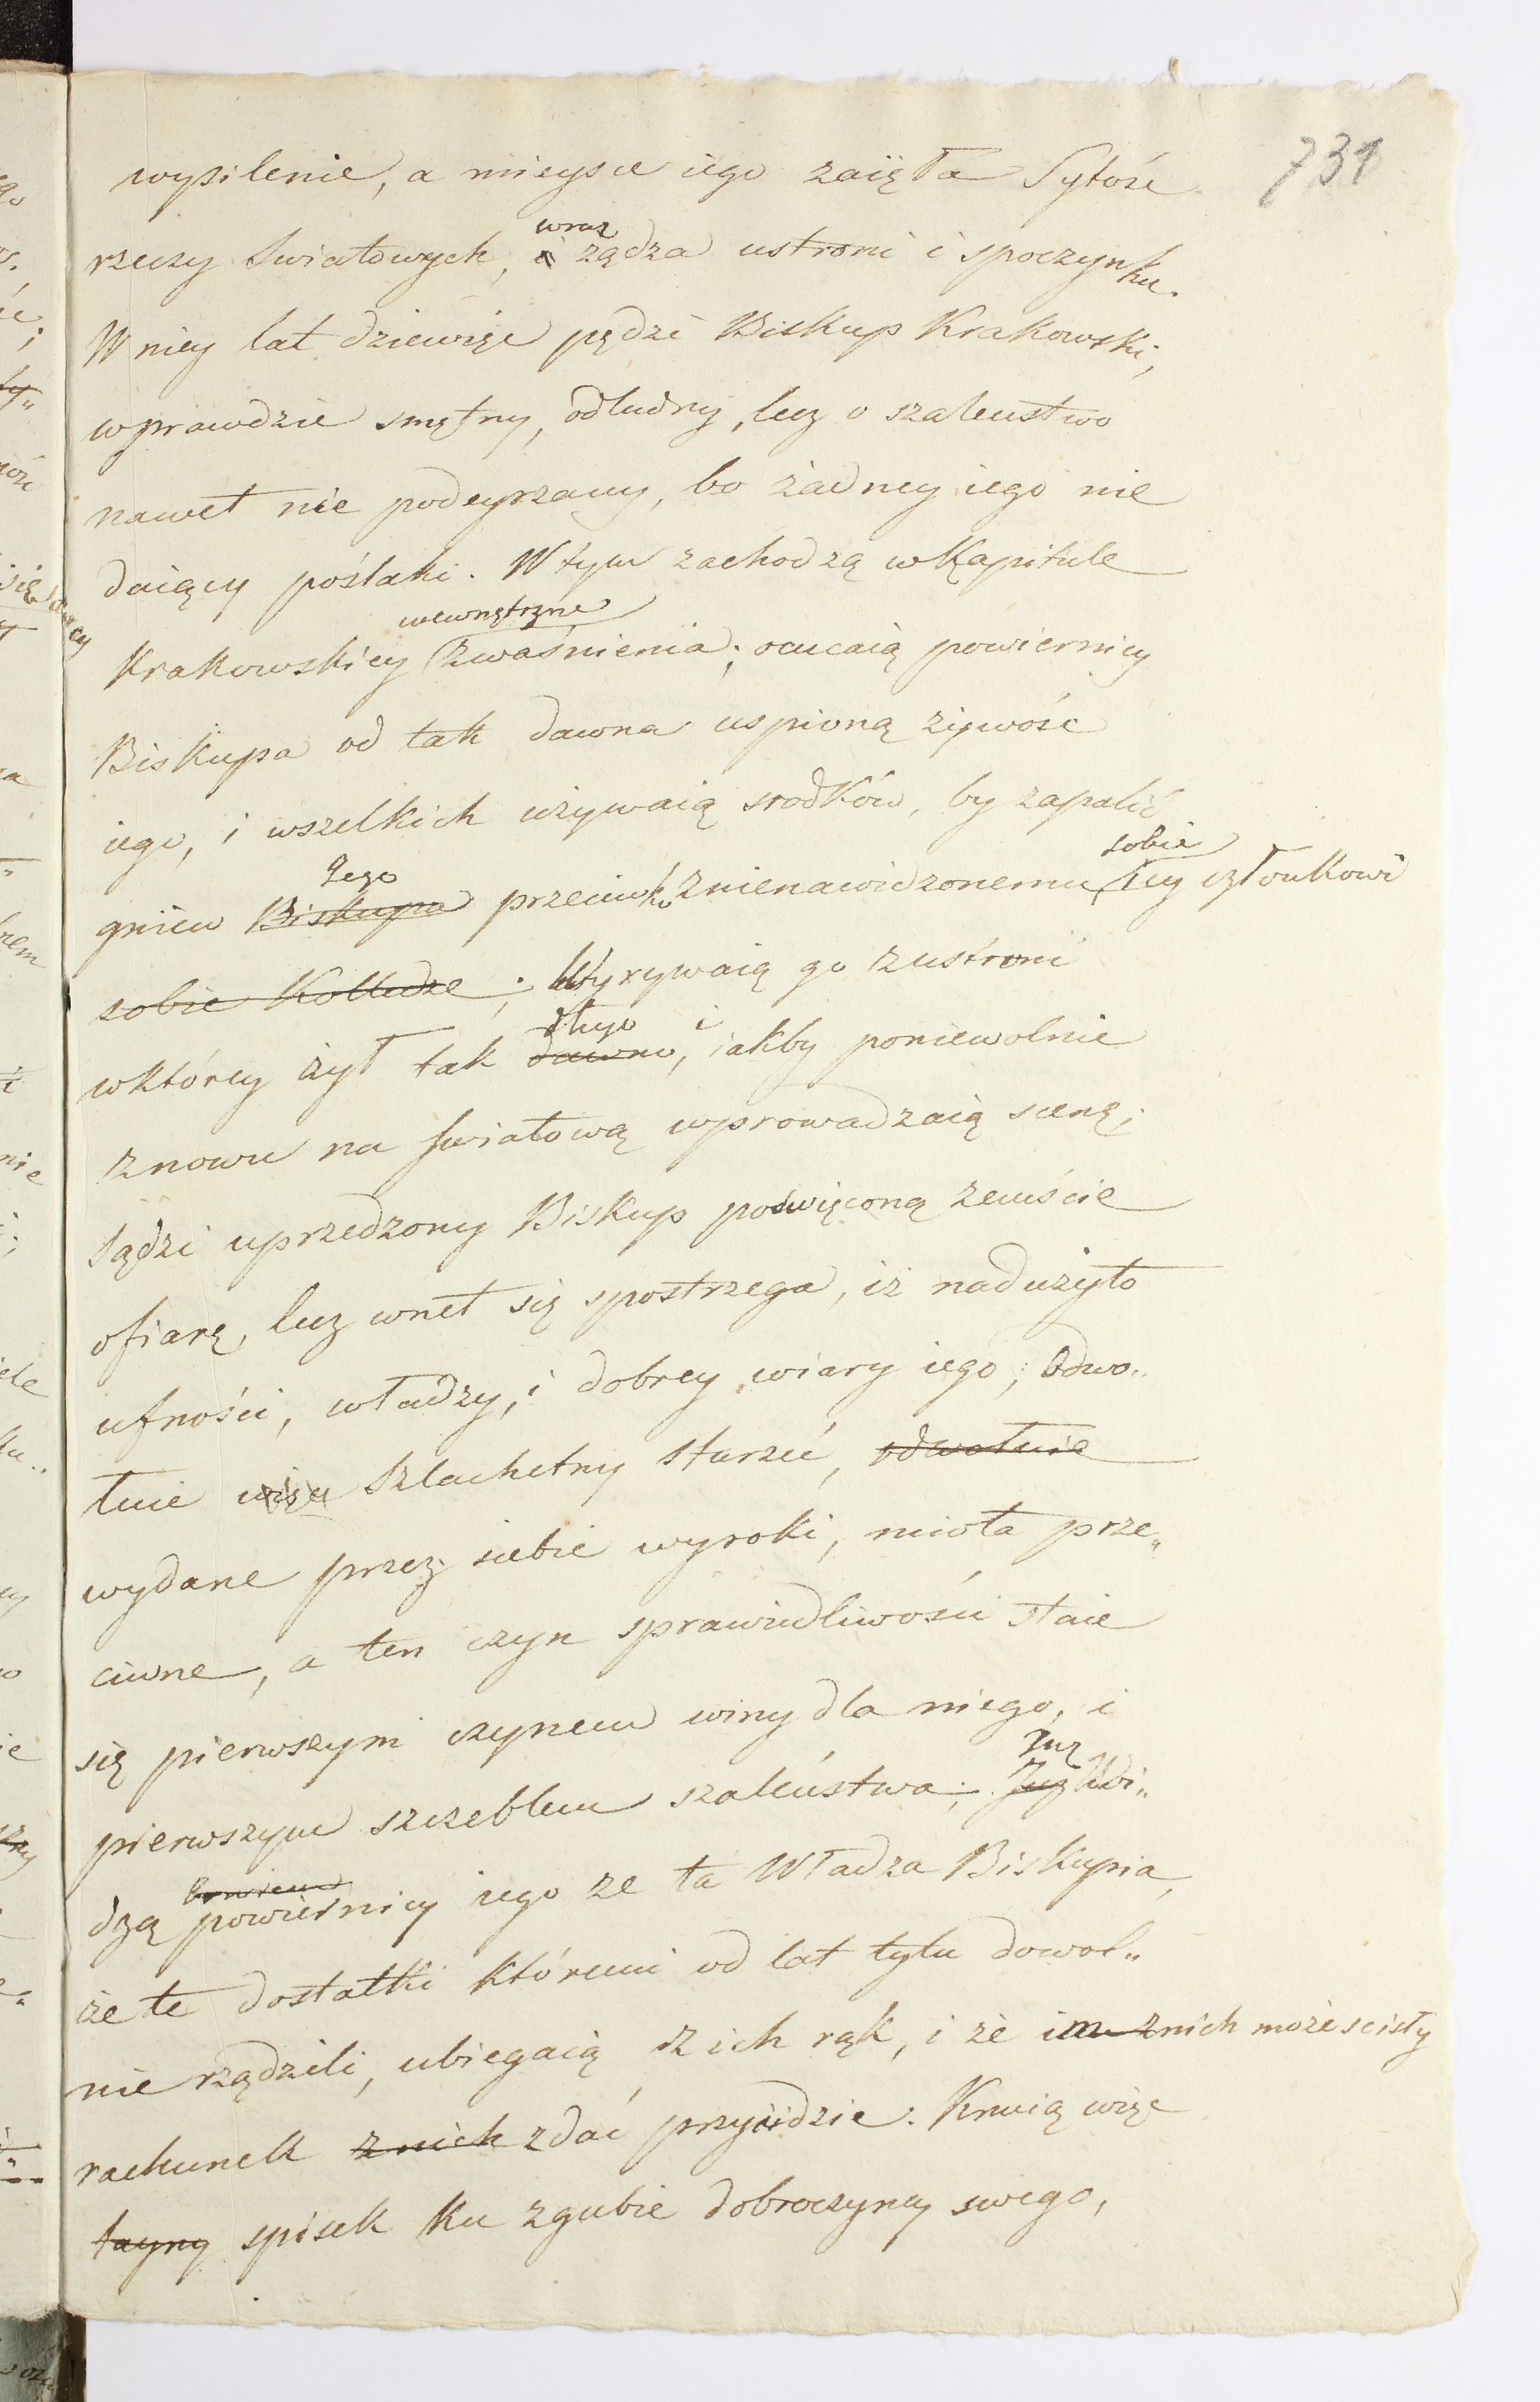 731
wysilenie, a mieysce iego zaięła Sytość
rzeczy światowych, wraz żądza ustroni i spoczynku.
W niey lat dziewięć pędzi Biskup Krakowski,
wprawdzie smętny, odludny, lecz o szaleństwo
nawet nie podeyrzany, bo żadney iego nie
daiący poślaki. W tym zachodzą w Kapitule
wewnętrzne
Krakowskiey zwaśnienia; ocucaią powiernicy
Biskupa od tak dawna uspioną żywość
iego, i wszelkich używaią srodków, by zapalić
Jego sobie
gniew Biskupa przeciwko znienawidzonemu Jey członkowi
sobie Kolledze; Wyrywaią go z ustroni
długo i
w którey żył tak dawno, iakby poniewolnie
znowu na światową wprowadzaią scenę;
sądzi uprzedzony Biskup poświęconą zemście
ofiarę, lecz wnet się spostrzega, iż nadużyto
ufności, władzy, i dobrey wiary iego; Odwo„
łuie Szlachetny Starzec, odwołuie
wydane przez siebie wyroki, miota prze„
ciwne, a ten czyn sprawiedliwości staie
się pierwszym czynem winy dla niego, i
Już
pierwszym szczeblem szaleństwa; Już Wi„
bowiem
dzą powiernicy iego ze ta Władza Biskupia,
że te dostatki któremi od lat tylu dowol„
nie rządzili, ubiegaią z ich rąk, i że im z nich może scisły
rachunek z nich zdać przyidzie. Knuią więc
tayny spisek ku zgubie dobroczyńcy swego,